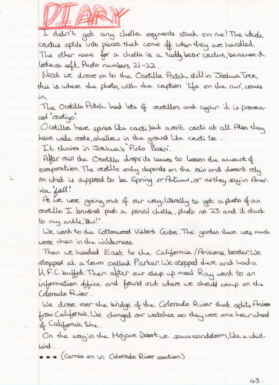 DIARY
I didn't get any cholla segments stuck on me! The whole
cactus splits into pieces that come off when they are handled.
The other name for a cholla is a teddy bear cactus, because it
looks so soft. Photo numbers 21-22.
Next we drove on to the Ocotillo Patch, still in Joshua Tree,
this is where the photo, with the caption 'Life on the run', comes
in.
The Ocotillo Patch had lots of ocotillos and again it is pronoun-
ced 'ocotiyo'.
Ocotillos have spines like cacti, but aren't cacti at all. Also they
have wide roots, shallow in the ground like cacti to.
It shares in Joshua's
After rain the Ocotillo drops its leaves to lessen the amount of
evaporation. The ocotillo only depends on the rain and doesn't rely
on what is supposed to be Spring or Autumn, or as they say in Amer-
ica 'fall'!
As we were going out of our way literally to get a photo of an
ocotillo I brushed past a pencil cholla, photo no 23 and it stuck
to my ankle. "Ow!"
We went to the Cottonwood Visitors Centre. The garden there was much
more than in the wilderness.
Then we headed East to the California/Arizona border. We
stopped at a town called Parker. We stopped there and had a
K.F.C buffet. Then after our slap up meal Ray went to an
information office and found out where we should camp on the
Colorado River.
We drove over the bridge of the Colorado River that splits Arizona
from California. We changed our watches as they were one hour ahead
of California time.
On the way in the Mojave Desert we saw a sandstorm, like a whirl
wind.
(Carries on in Colorado River section)
43